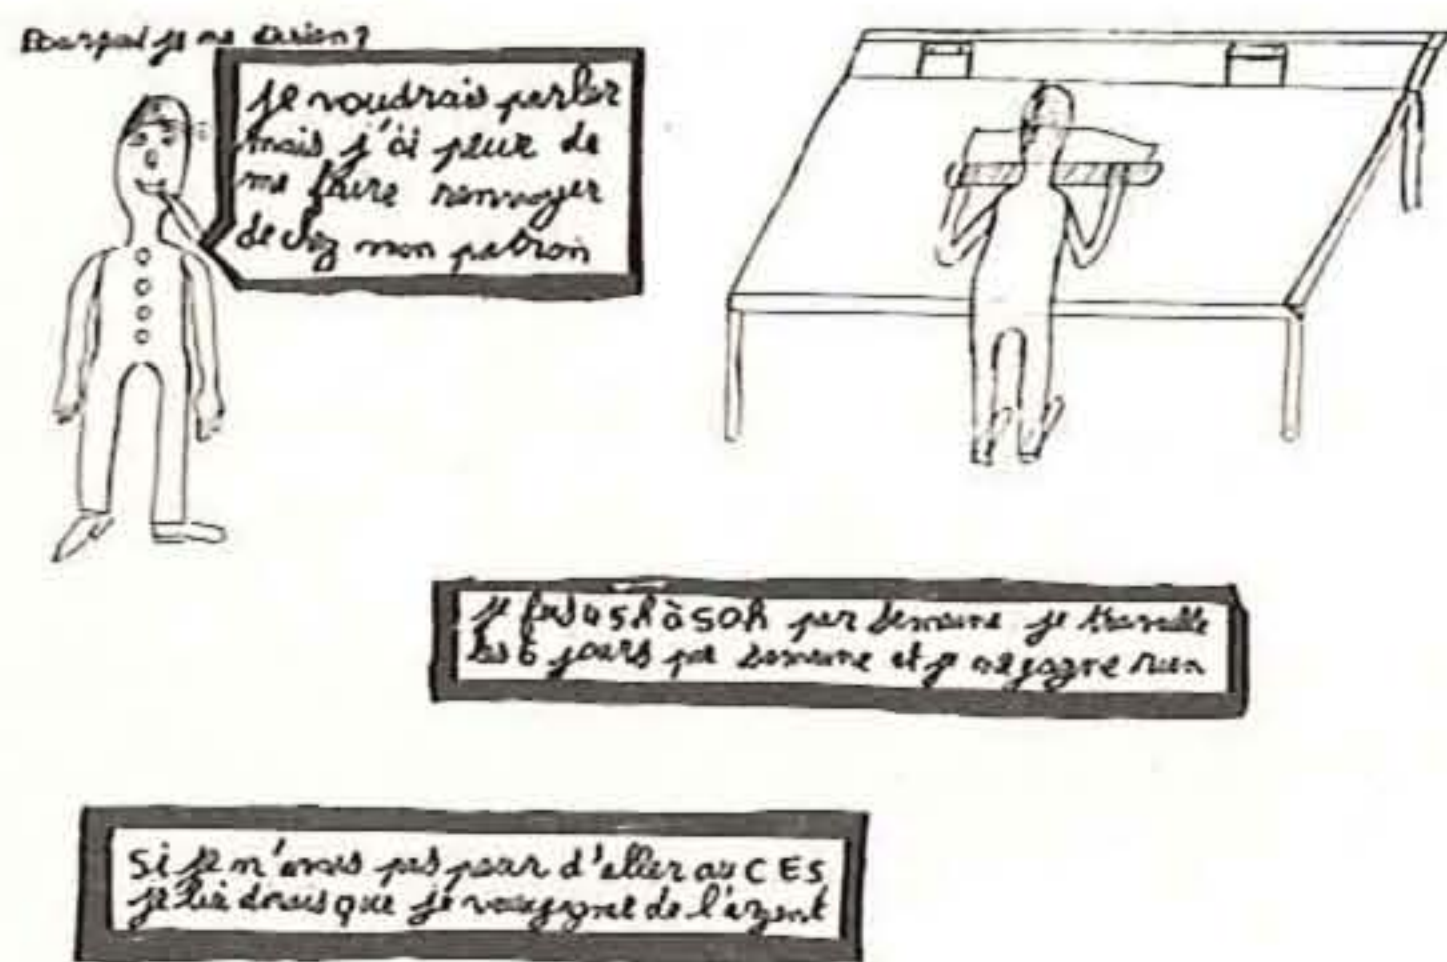 je me
je voudrais parler
mais j'ai peur de
me faire renvoyer
de chez mon patron
je fais 45h à 50h par semaine je travaille
les 6 jours par semaine et je ne gagne rien
si je n'avais pas peur d'aller au CES
je lui dirais que je veux gagner de l'argent